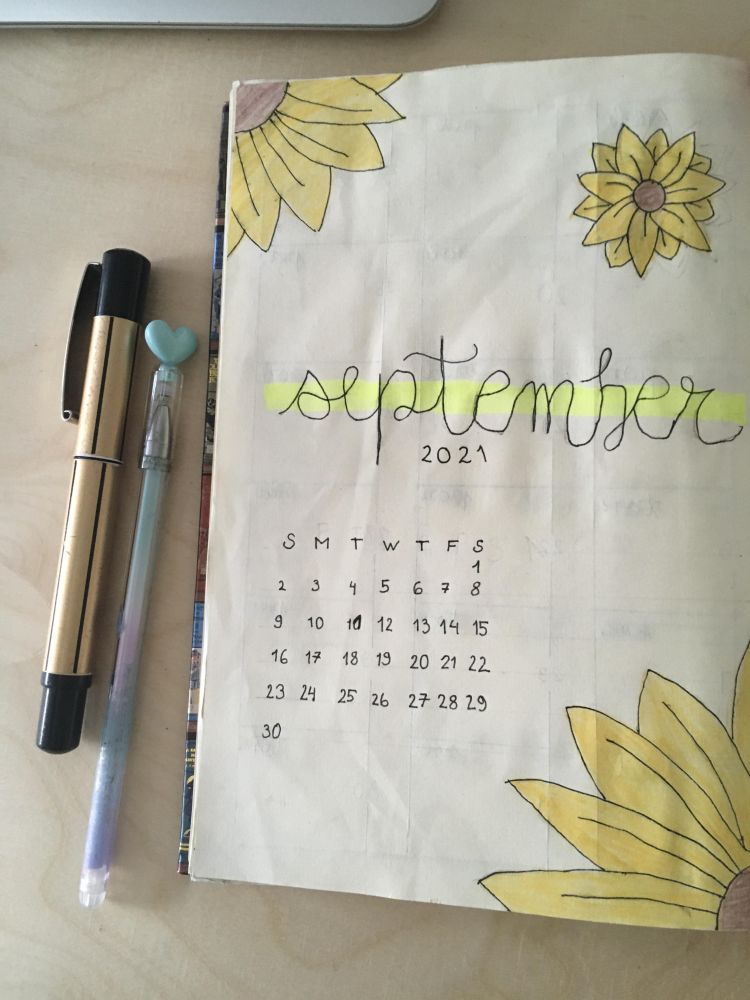 september
2021
S M T W T F S
1
2 3 4 5 6 7 8
9 10 11 12 13 14 15
16 17 18 19 20 21 22
23 24 25 26 27 28 29
30